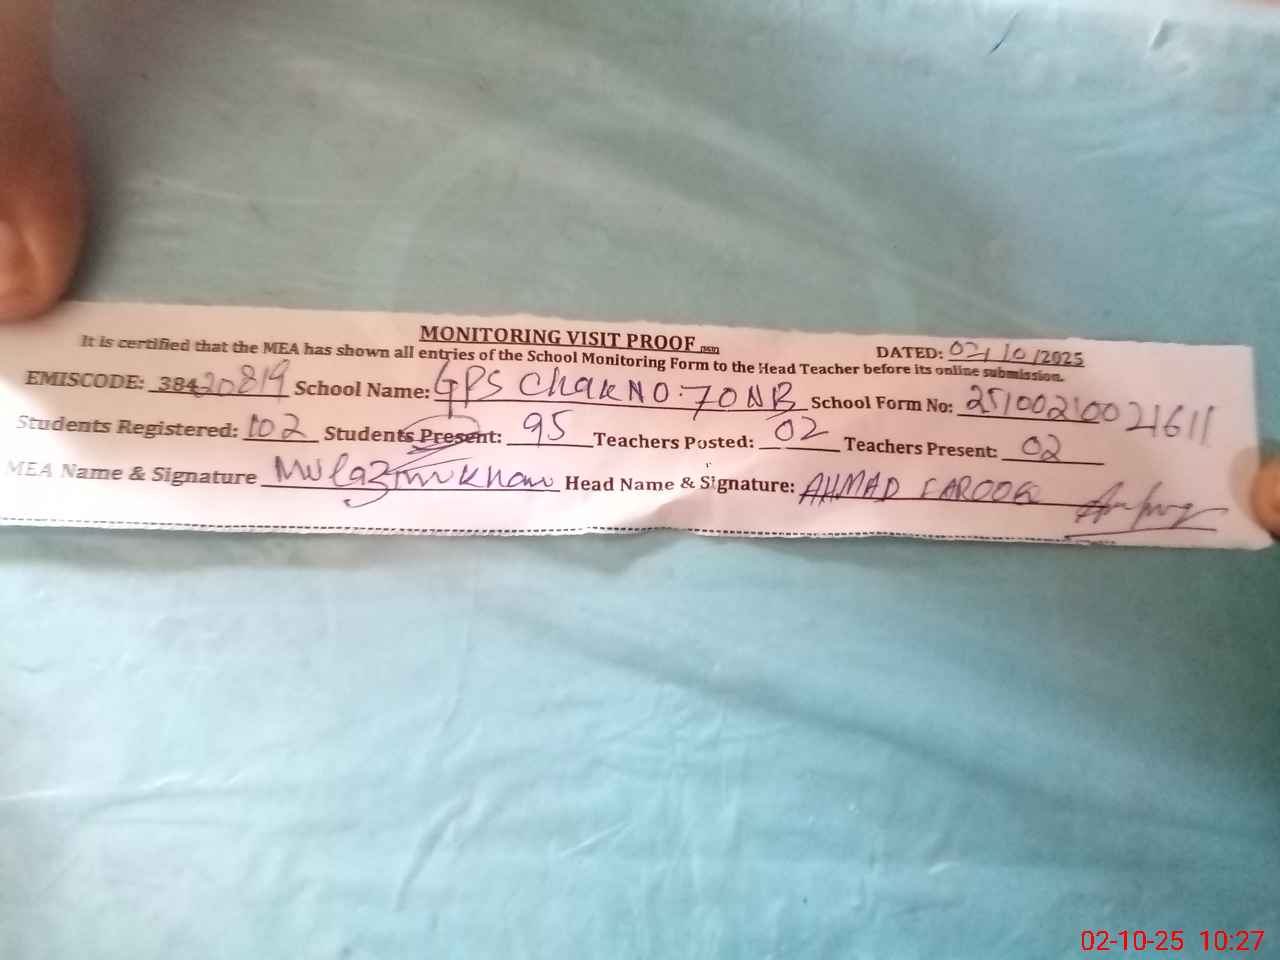 MONITORING VISIT PROOF
DATED: 02/10/2025
It is certified that the MEA has shown all entries of the School Monitoring Form to the Head Teacher before its online submission.
EMISCODE: 38420819 School Name: GPS Chak NO.70NB School Form No: 25100210021611
Students Registered: 102 Students Present: 95 Teachers Posted: 02 Teachers Present: 02
MEA Name & Signature Khan Head Name & Signature: AHMAD FAROOQ
02-10-25 10:27